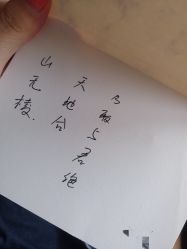 山无棱.
天地合
乃敢与君绝